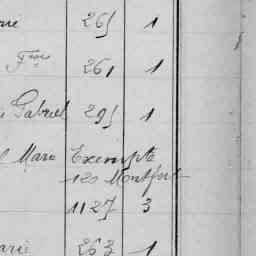 rie 265 1
Fçois 261 1
Gabriel 295 1
Marc Exempte
120 Montfort
1127 3
arie 263 1